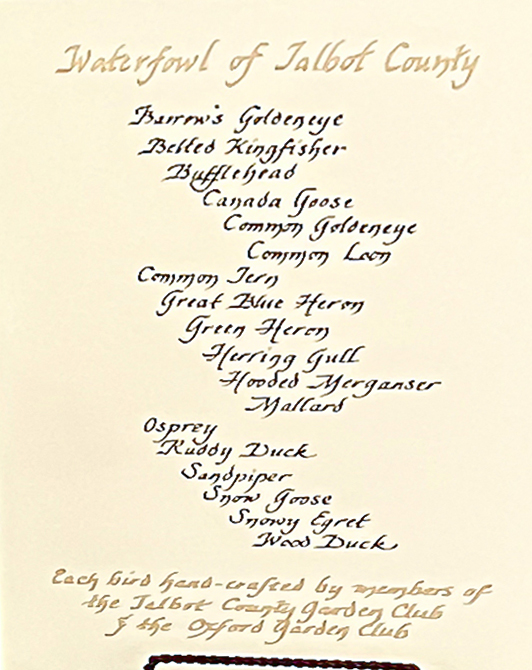 Waterfowl of Talbot County
Barrow's Goldeneye
Belted Kingfisher
Bufflehead
Canada Goose
Common Goldeneye
Common Loon
Common Tern
Great Blue Heron
Green Heron
Herring Gull
Hooded Merganser
Mallard
Osprey
Ruddy Duck
Sandpiper
Snow Goose
Snowy Egret
Wood Duck
Each bird hand-crafted by members of
the Talbot County Garden Club
& the Oxford Garden Club